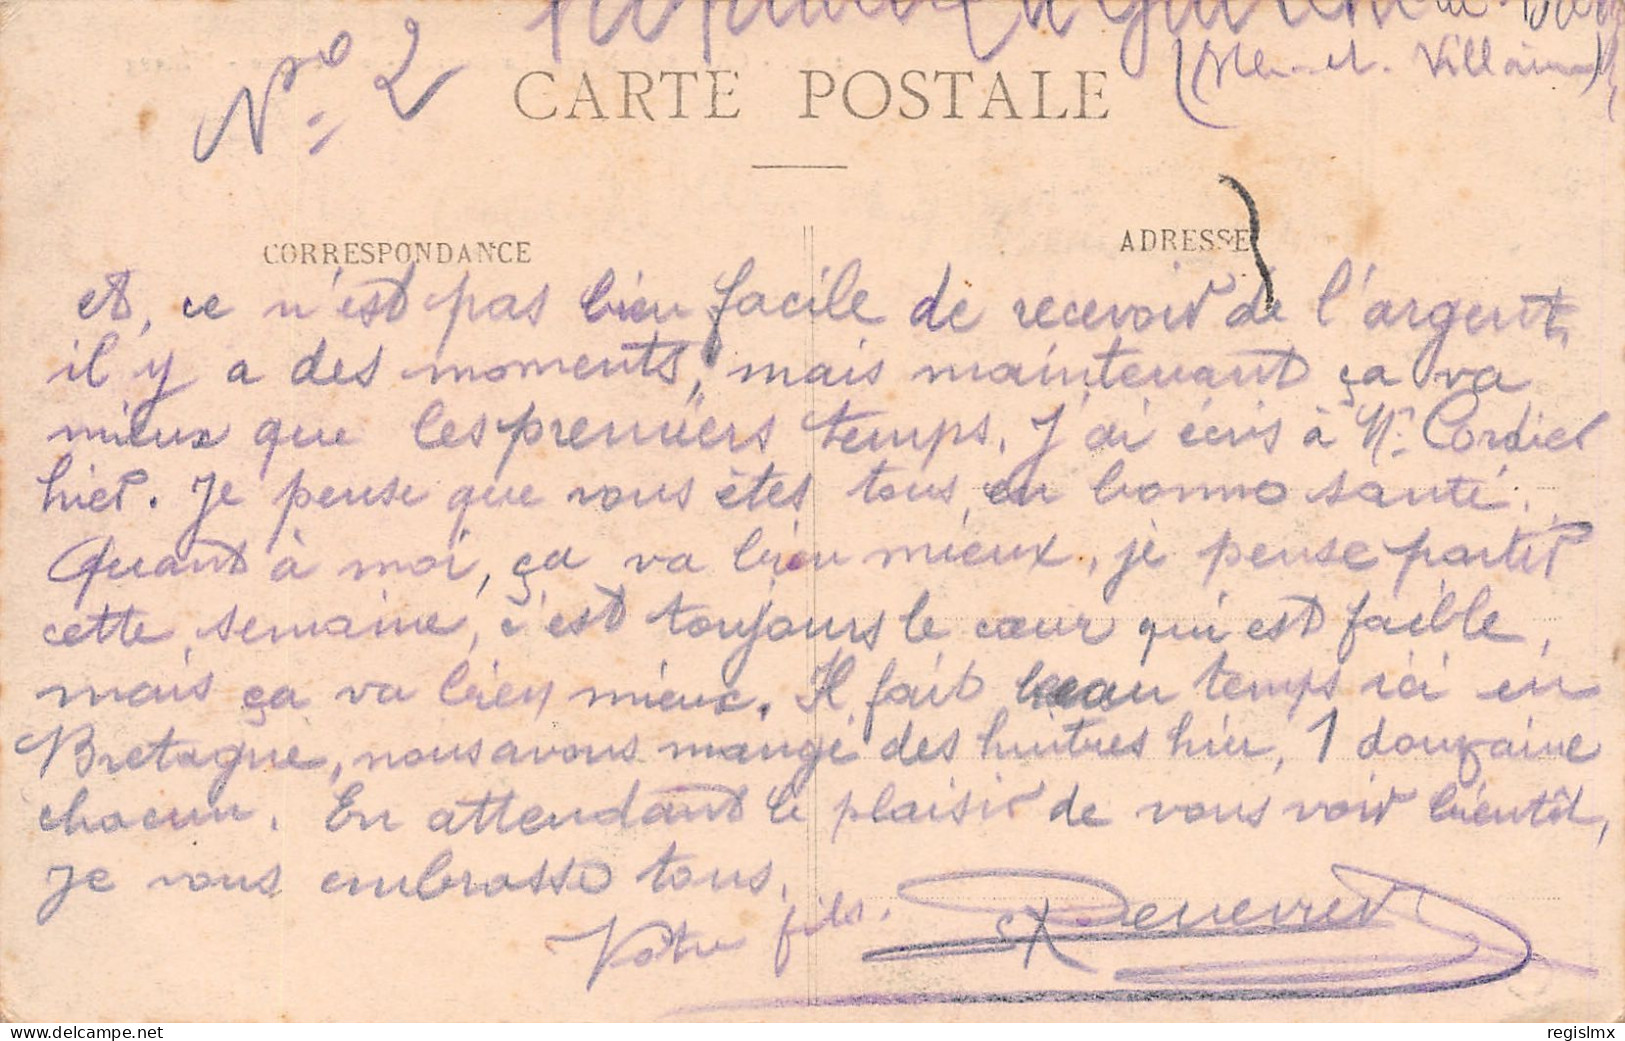 No 2
(Ille-et-Villaine)
CARTE POSTALE
CORRESPONDANCE
ADRESSE
et, ce n'est pas bien facile de recevoir de l'argent,
il y a des moments, mais maintenant ça va
mieux que les premiers temps. J'ai écris à Mr Cordier
hier. Je pense que vous êtes tous en bonne santé.
Quant à moi, ça va bien mieux, je pense partir
cette semaine, c'est toujours le cœur qui est faible,
mais ça va bien mieux. Il fait beau temps ici en
Bretagne, nous avons mangé des huîtres hier, 1 douzaine
chacun. En attendant le plaisir de vous voir bientôt,
je vous embrasse tous.
Votre fils.
delcampe.net
regislmx